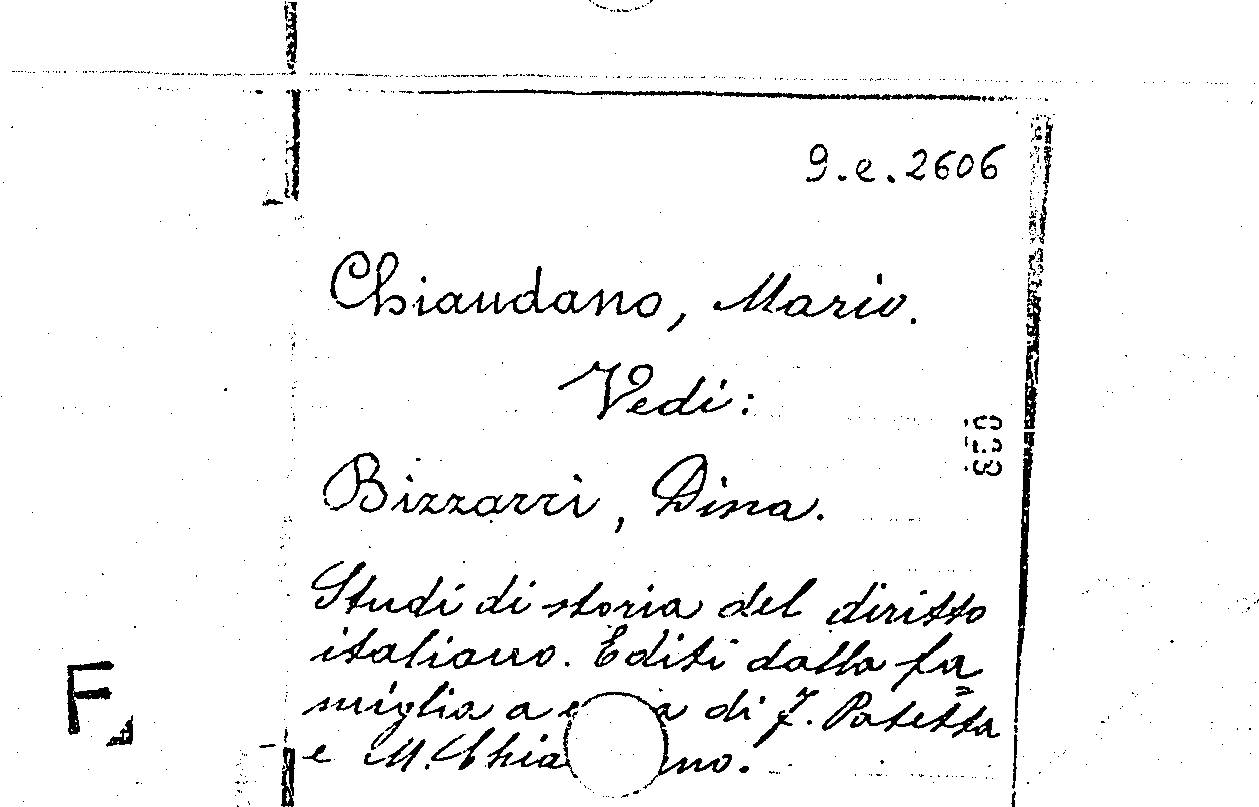 9.e.2606
Chiaudano, Mario.
Vedi:
Bizzarri, Dina.
Studi di storia del diritto
italiano. Editi dalla fa=
miglia a di F. Patetta
e M. Chia no.
F